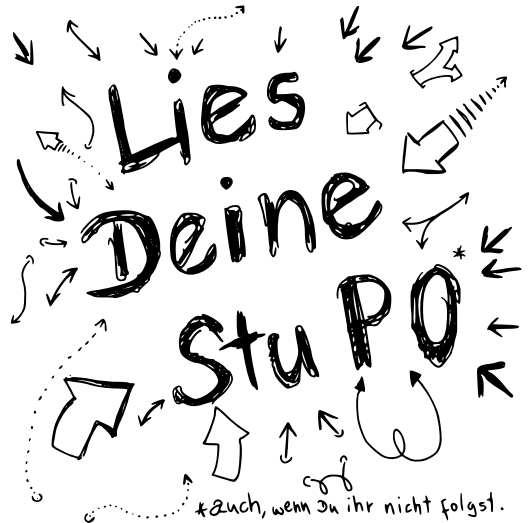 Lies
Deine
StuPO*
*auch, wenn Du ihr nicht folgst.